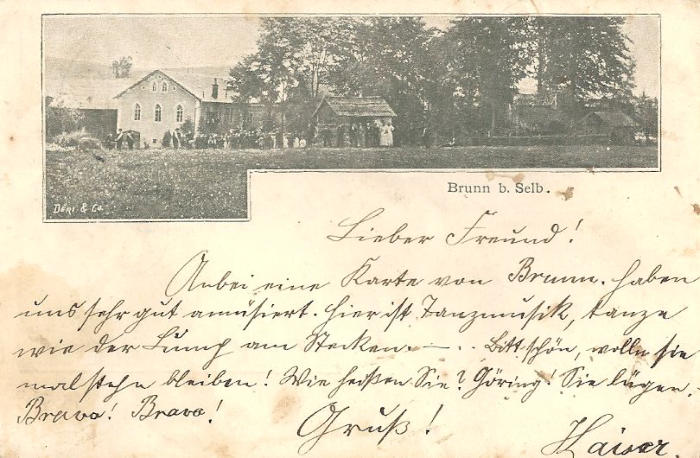 Deri & Co.
Brunn b. Selb.
Lieber Freund!
Anbei eine Karte von Brunn. haben
uns sehr gut amüsiert. hier ist Tanzmusik, tanze
wie der Lump am Stecken. — . . Bitt schön, wolln sie
mal stehn bleiben! Wie heißen Sie? Göring! Sie lügen.
Bravo! Bravo!
Gruß!
Kaiser.